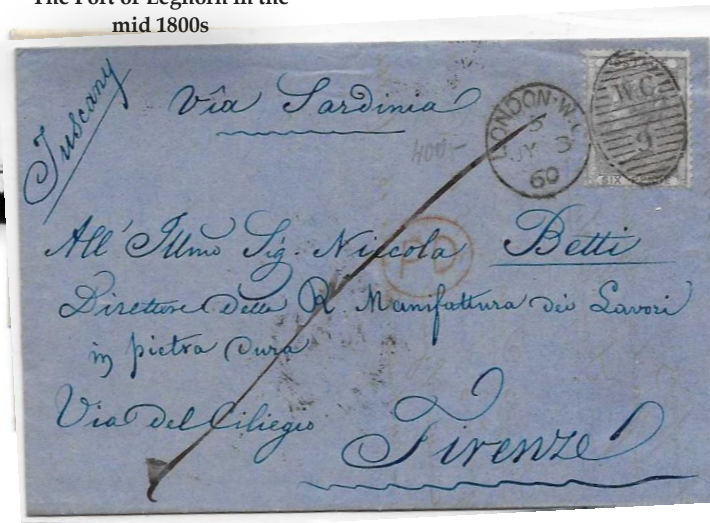 The Port of Leghorn in the
mid 1800s
Tuscany
Via Sardinia
LONDON·W.C
5
JY 3
60
W.C
9
SIX
4005-
All' Illmo Sig. Niccola Betti
PD
Direttore della R Manifattura dei Lavori
in pietra dura
Via del Ciliegio
Firenze